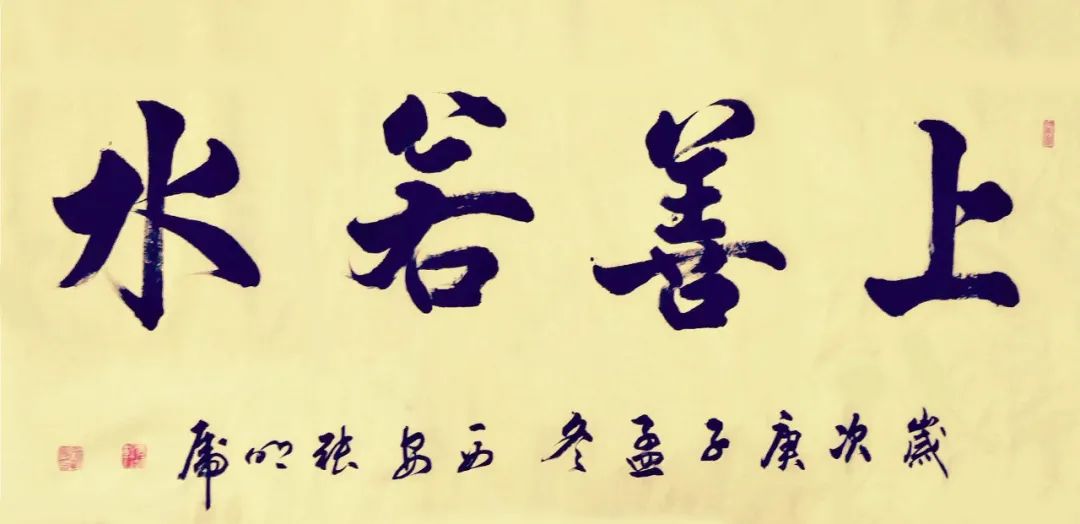 上善若水
歲次庚子孟冬西安張明虎